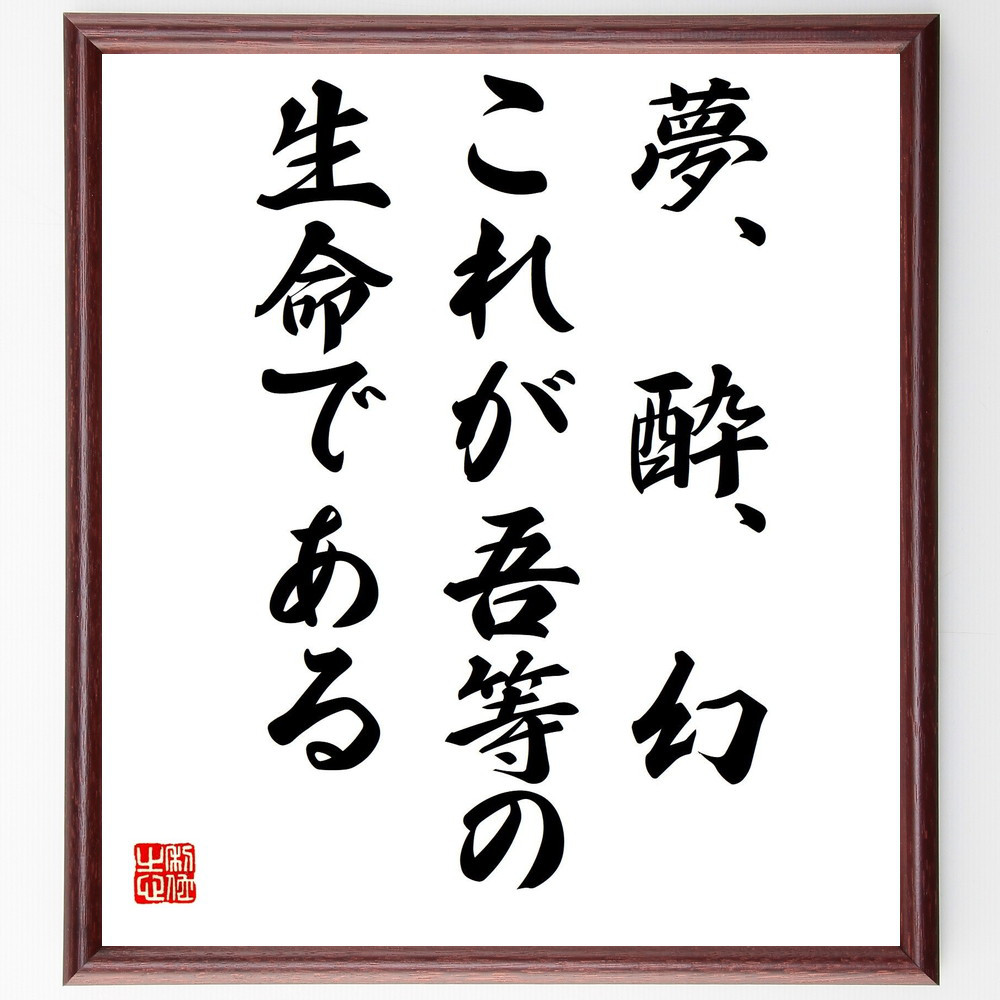 夢、酔、幻
これが吾等の
生命である